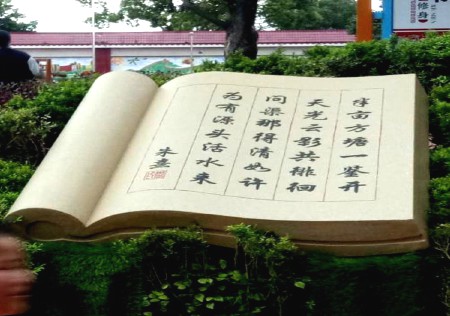 半亩方塘一鉴开
天光云影共徘徊
问渠那得清如许
为有源头活水来
朱熹
修身